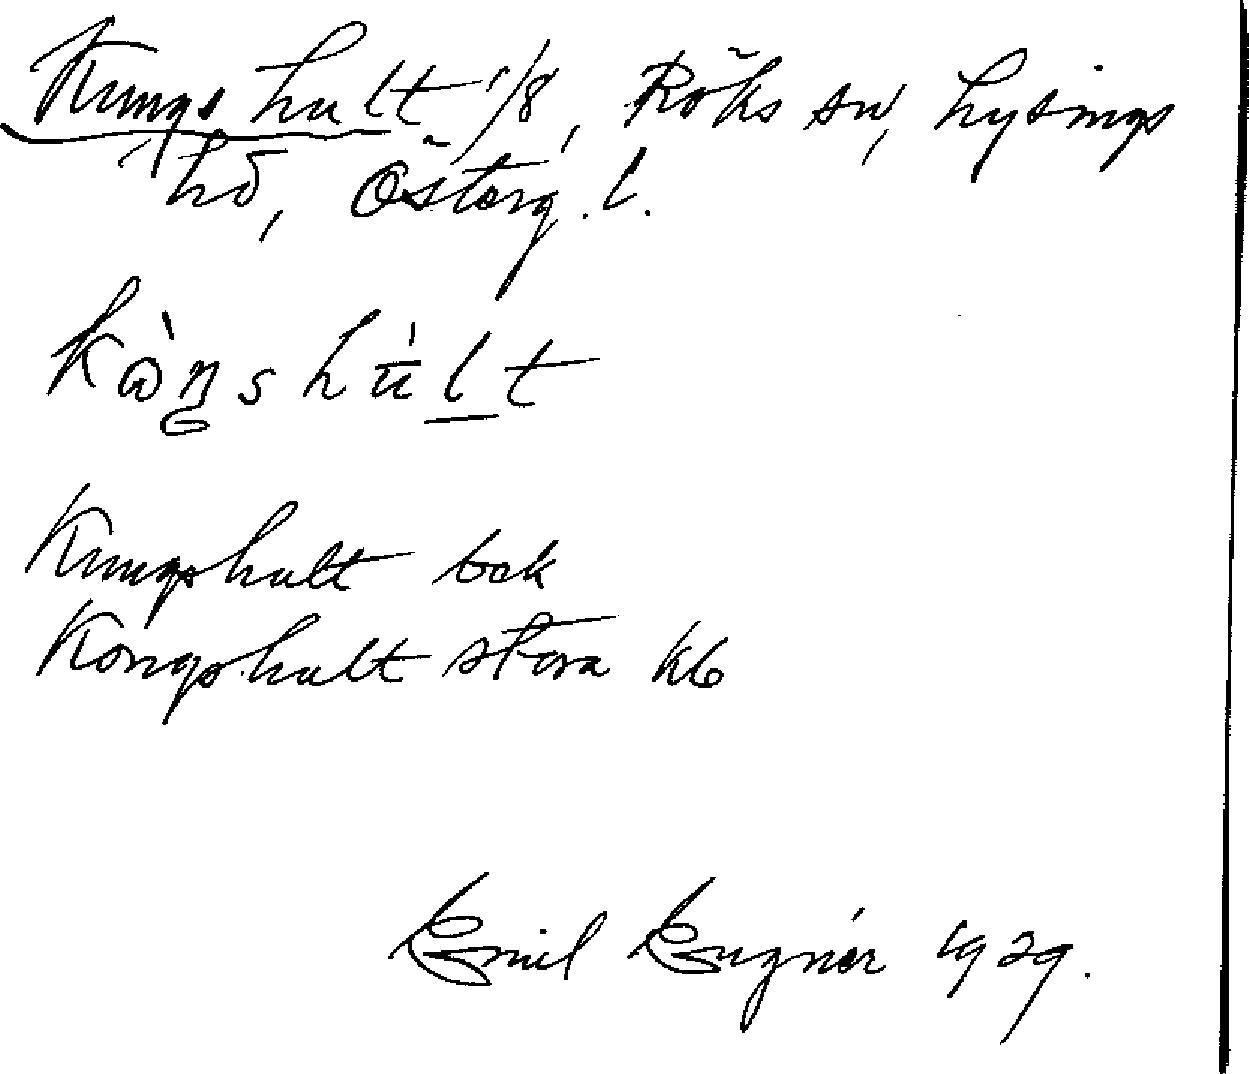 Kungshult 1/8, Röks sn, Lysings
hd, Österg.l.
kὼŋshu̇lt
Kungshult bek
Kongshult stora kb
Emil Engnér 1929.